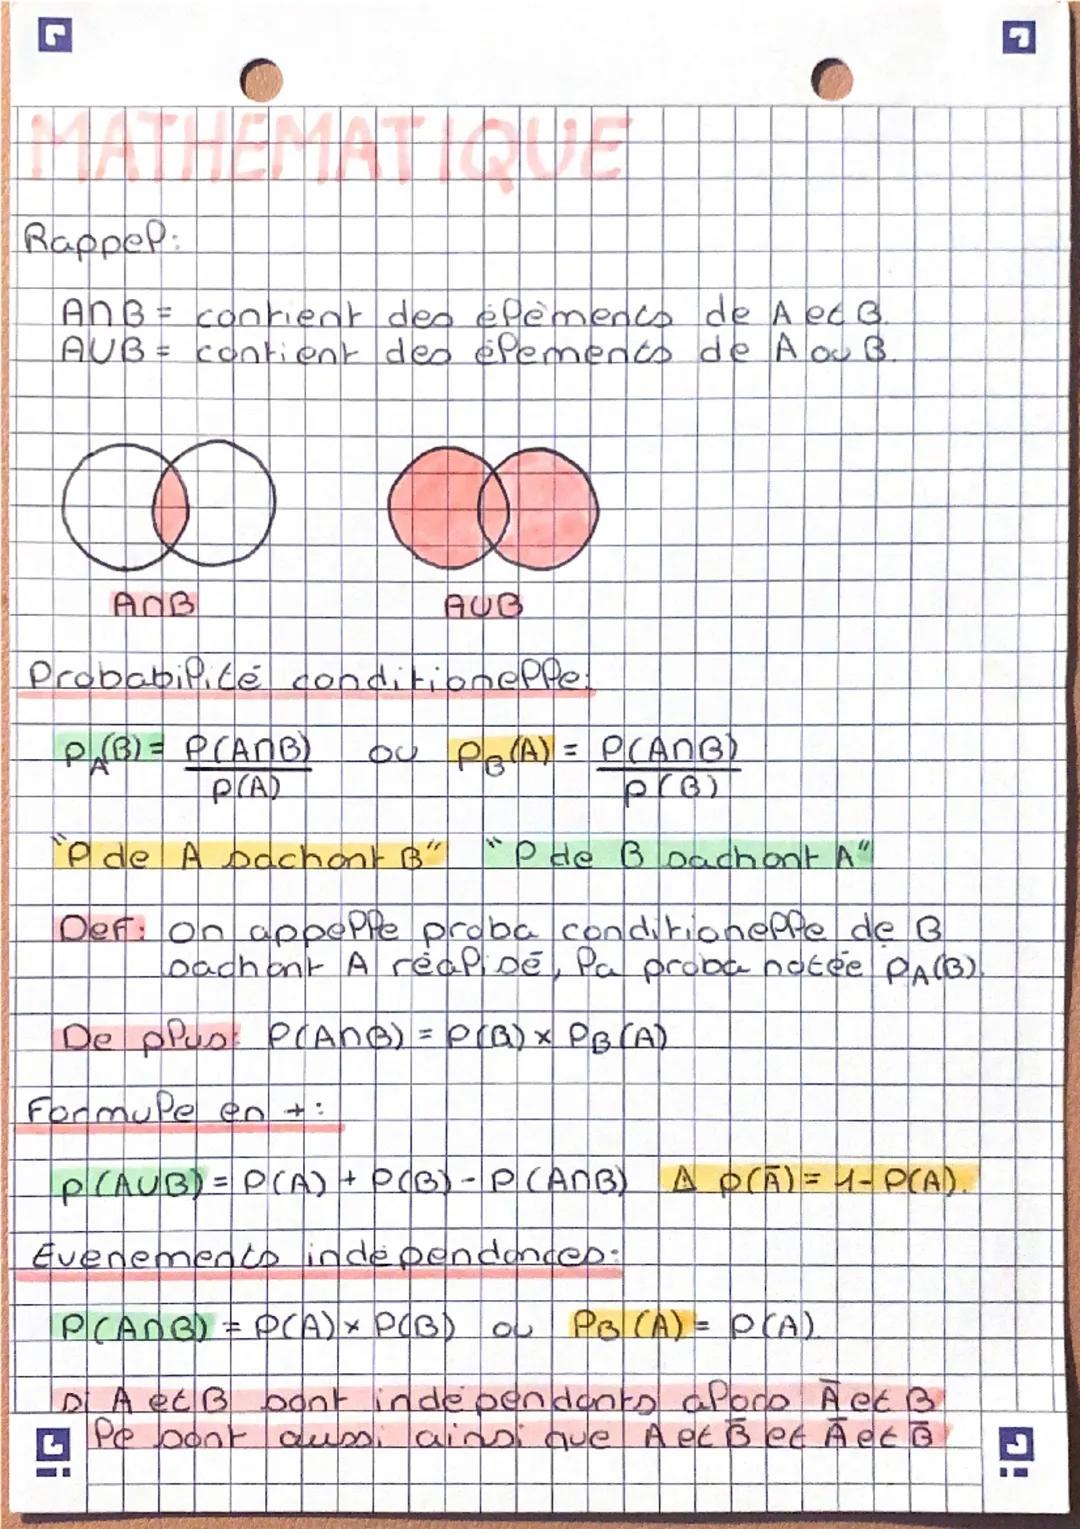 MATHEMATIQUE
Rappel:
A∩B = contient des élèments de A et B.
AUB = contient des élements de A ou B.
A∩B AUB
Probabilité conditionelle:
P_A(B) = P(A∩B)/P(A) ou P_B(A) = P(A∩B)/P(B)
"P de A sachant B" "P de B sachant A"
Def: on appelle proba conditionelle de B
sachant A réalisé, la proba notée P_A(B).
De plus: P(A∩B) = P(B) x P_B(A)
Formule en +:
P(AUB) = P(A) + P(B) - P(A∩B) Δ P(Ā) = 1 - P(A).
Evenements indépendances:
P(A∩B) = P(A) x P(B) ou P_B(A) = P(A).
Si A et B sont indépendants alors Ā et B
le sont aussi ainsi que A et B̄ et Ā et B̄